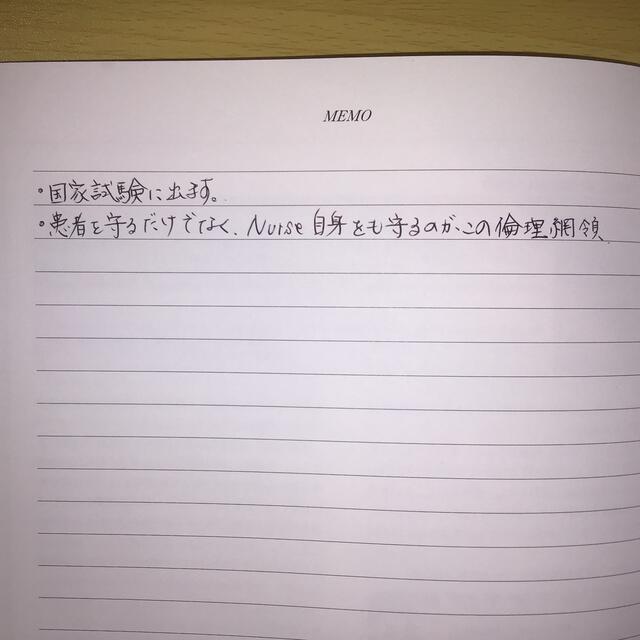 MEMO
・国家試験に出ます。
・患者を守るだけでなく、Nurse自身をも守るのが、この倫理綱領